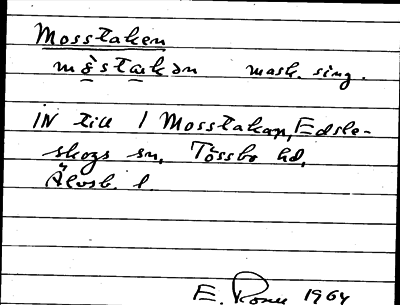 Mosstaken
mòstak ən mask. sing.
IN till 1 Mosstakan, Edsle-
skogs sn, Tössbo hd,
Älvsb. l.
E. 1964